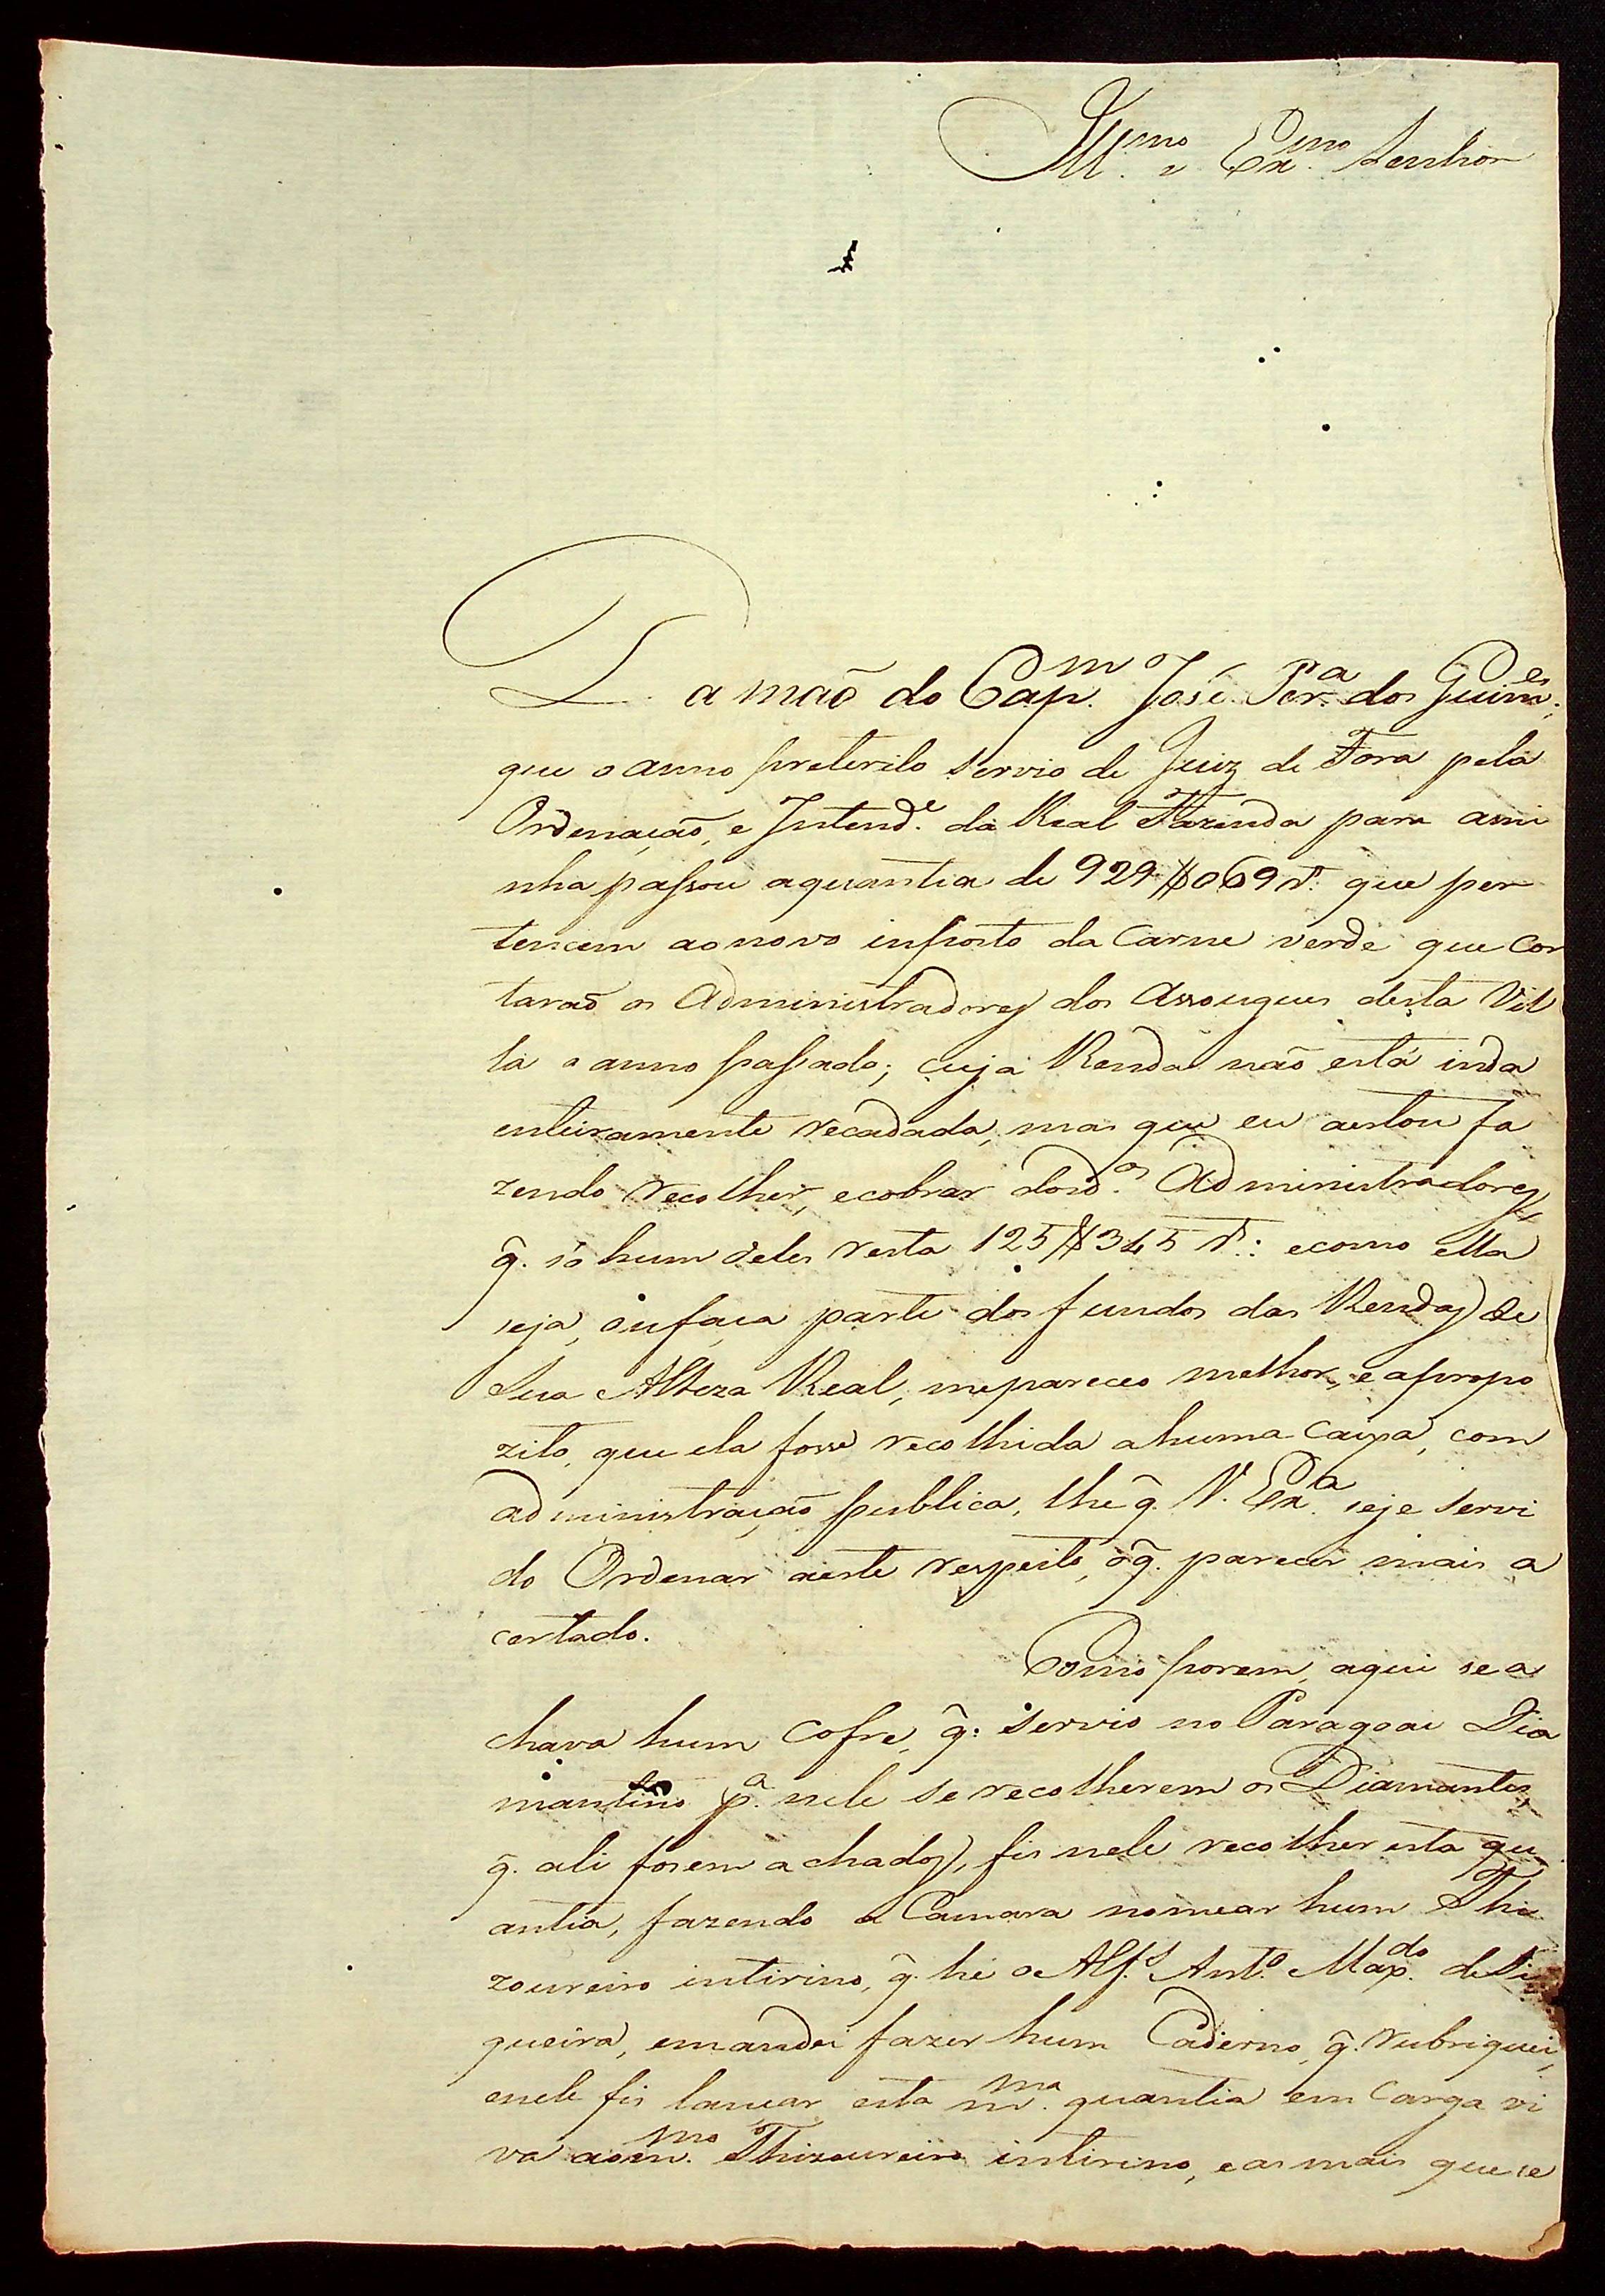 Ill.mo e Ex.mo Senhor
Da mão do Cap.m José Per.a dos Guim.es,
que o anno preterito servio de Juiz de Fora pela
Ordenação, e Intend.e da Real Fazenda para ami
nha passou aquantia de 929$069 r.s que per
tencem ao novo inposto da Carne verde que Cor
tarão os Administradores dos Assougues desta Vil
la o anno passado; cuja Renda não está inda
inteiramente recadada, mas que eu aestou fa
zendo recolher, ecobrar dosd.os Administradores,
q̃. só hum deles resta 125$345 r.s: ecomo ella
seja, oufaça parte dos fundos das Rendas de
Sua Alteza Real, mepareceo melhor, e apropo
zito, que ela fosse recolhida ahuma Caixa, com
administração publica, the q̃. V. Ex.a seje servi
do Ordenar aeste respeito, oq̃. parecer mais a
certado.
Como porem, aqui se a
chava hum Cofre, q̃. servio no Paragoai Dia
mantino p.a nele se recolherem os Diamantes,
q̃. ali fosem achados, fis nele recolher esta qu
antia, fazendo a Camara nomear hum The
zoureiro intirino, q̃. hé o Alf.s Ant.o Max.do deSi
queira, emandei fazer hum Caderno, q̃. rubriquei,
enele fis lançar esta m.ma quantia em Carga vi
va aom.mo Thizoureiro intirino, eas mais que se